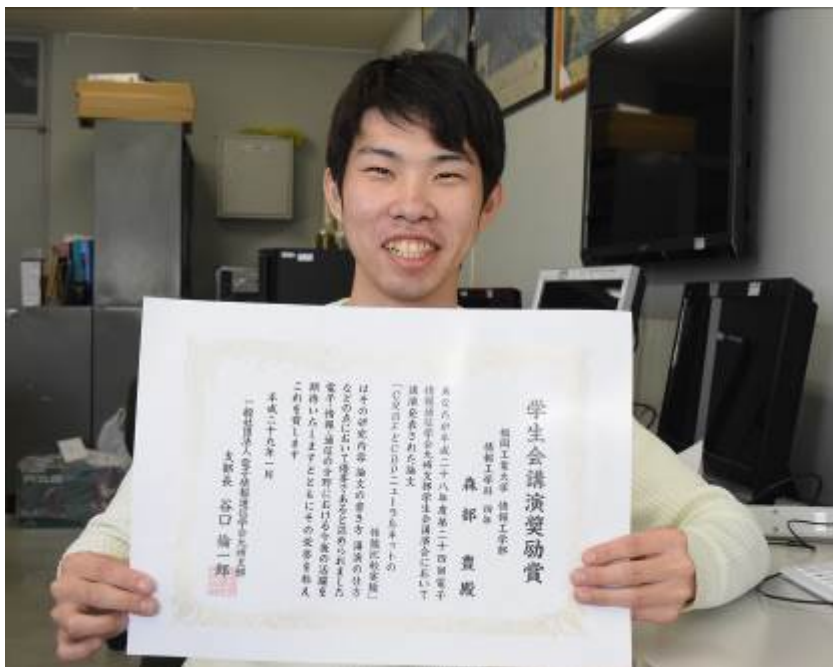 学生会講演奨励賞
福岡工業大学 情報工学部
情報工学科 四年
森部 貴 殿
あなたが平成二十八年度第二十四回電子
情報通信学会九州支部学生会講演会において
講演発表された論文
ニューラルネットの
性能比較実験」
はその研究内容 論文の書き方 講演の仕方
などの点において優秀であると認められました
電子・情報・通信の分野における今後の活躍を
期待いたしますとともにその栄誉を称え
これを賞します
平成二十九年一月
一般社団法人 電子情報通信学会九州支部
支部長 谷口 倫一郎